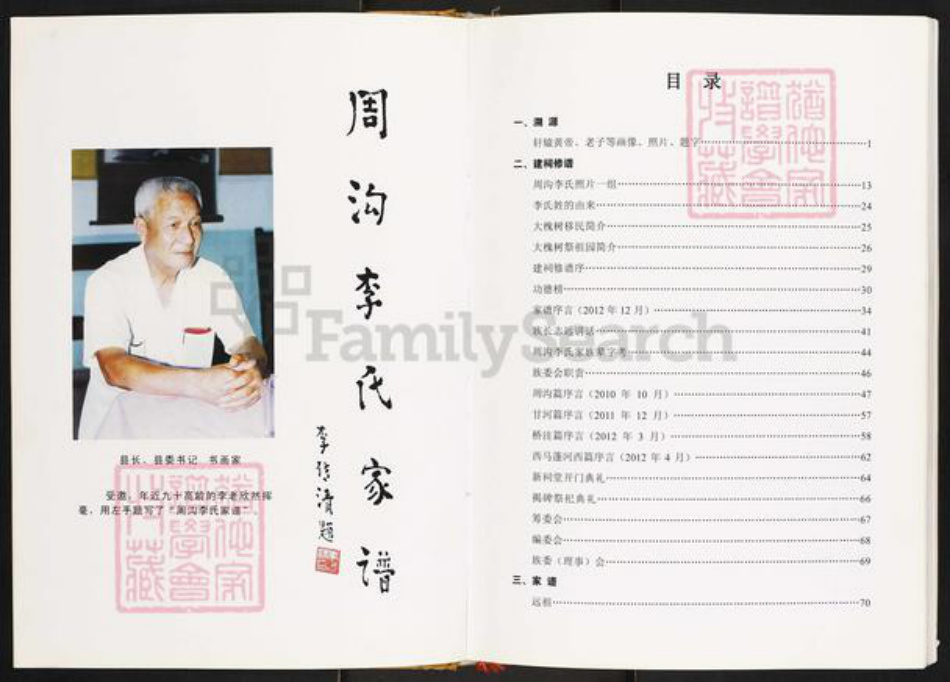 周沟李氏家谱
李传清题
县长、县委书记 书画家
受邀，年近九十高龄的李老欣然挥
毫，用左手题写了“周沟李氏家谱”。
目 录
一、溯 源
轩辕黄帝、老子等画像、照片、题字……1
二、建祠修谱
周沟李氏照片一组……13
李氏姓的由来……24
大槐树移民简介……25
大槐树祭祖园简介……26
建祠修谱序……29
功德榜……30
家谱序言（2012 年 12 月）……34
族长志远讲话……41
周沟李氏家族辈字考……44
族委会职责……46
周沟篇序言（2010 年 10 月）……47
甘河篇序言（2011 年 12 月）……57
桥洼篇序言（2012 年 3 月）……58
西马蓬河西篇序言（2012 年 4 月）……62
新祠堂开门典礼……64
揭碑祭祀典礼……66
筹委会……67
编委会……68
族委（理事）会……69
三、家 谱
远祖……70
FamilySearch